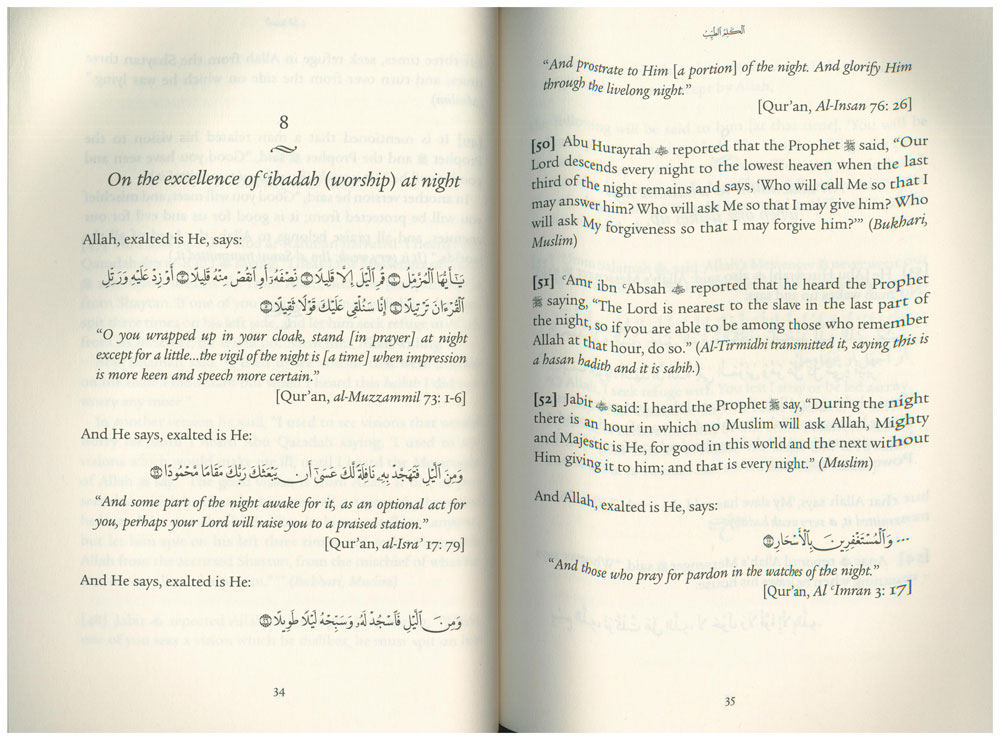 8
On the excellence of ʿibadah (worship) at night
Allah, exalted is He, says:
يَـٰٓأَيُّهَا ٱلْمُزَّمِّلُ ۝١ قُمِ ٱلَّيْلَ إِلَّا قَلِيلًا ۝٢ نِّصْفَهُۥٓ أَوِ ٱنقُصْ مِنْهُ قَلِيلًا ۝٣ أَوْ زِدْ عَلَيْهِ وَرَتِّلِ
ٱلْقُرْءَانَ تَرْتِيلًا ۝٤ إِنَّا سَنُلْقِى عَلَيْكَ قَوْلًا ثَقِيلًا ۝٥
“O you wrapped up in your cloak, stand [in prayer] at night
except for a little...the vigil of the night is [a time] when impression
is more keen and speech more certain.”
[Qur’an, al-Muzzammil 73: 1-6]
And He says, exalted is He:
وَمِنَ ٱلَّيْلِ فَتَهَجَّدْ بِهِۦ نَافِلَةً لَّكَ عَسَىٰٓ أَن يَبْعَثَكَ رَبُّكَ مَقَامًا مَّحْمُودًا ۝٧٩
“And some part of the night awake for it, as an optional act for
you, perhaps your Lord will raise you to a praised station.”
[Qur’an, al-Isra’ 17: 79]
And He says, exalted is He:
وَمِنَ ٱلَّيْلِ فَٱسْجُدْ لَهُۥ وَسَبِّحْهُ لَيْلًا طَوِيلًا ۝٢٦
34
ٱلْكَلِمُ ٱلطَّيِّبُ
“And prostrate to Him [a portion] of the night. And glorify Him
through the livelong night.”
[Qur’an, Al-Insan 76: 26]
[50] Abu Hurayrah reported that the Prophet ﷺ said, “Our
Lord descends every night to the lowest heaven when the last
third of the night remains and says, ‘Who will call Me so that I
may answer him? Who will ask Me so that I may give him? Who
will ask My forgiveness so that I may forgive him?’” (Bukhari,
Muslim)
[51] ʿAmr ibn ʿAbsah reported that he heard the Prophet
ﷺ saying, “The Lord is nearest to the slave in the last part of
the night, so if you are able to be among those who remember
Allah at that hour, do so.” (Al-Tirmidhi transmitted it, saying this is
a hasan hadith and it is sahih.)
[52] Jabir said: I heard the Prophet ﷺ say, “During the night
there is an hour in which no Muslim will ask Allah, Mighty
and Majestic is He, for good in this world and the next without
Him giving it to him; and that is every night.” (Muslim)
And Allah, exalted is He, says:
... وَٱلْمُسْتَغْفِرِينَ بِٱلْأَسْحَارِ ۝١٧
“And those who pray for pardon in the watches of the night.”
[Qur’an, Al ʿImran 3: 17]
35